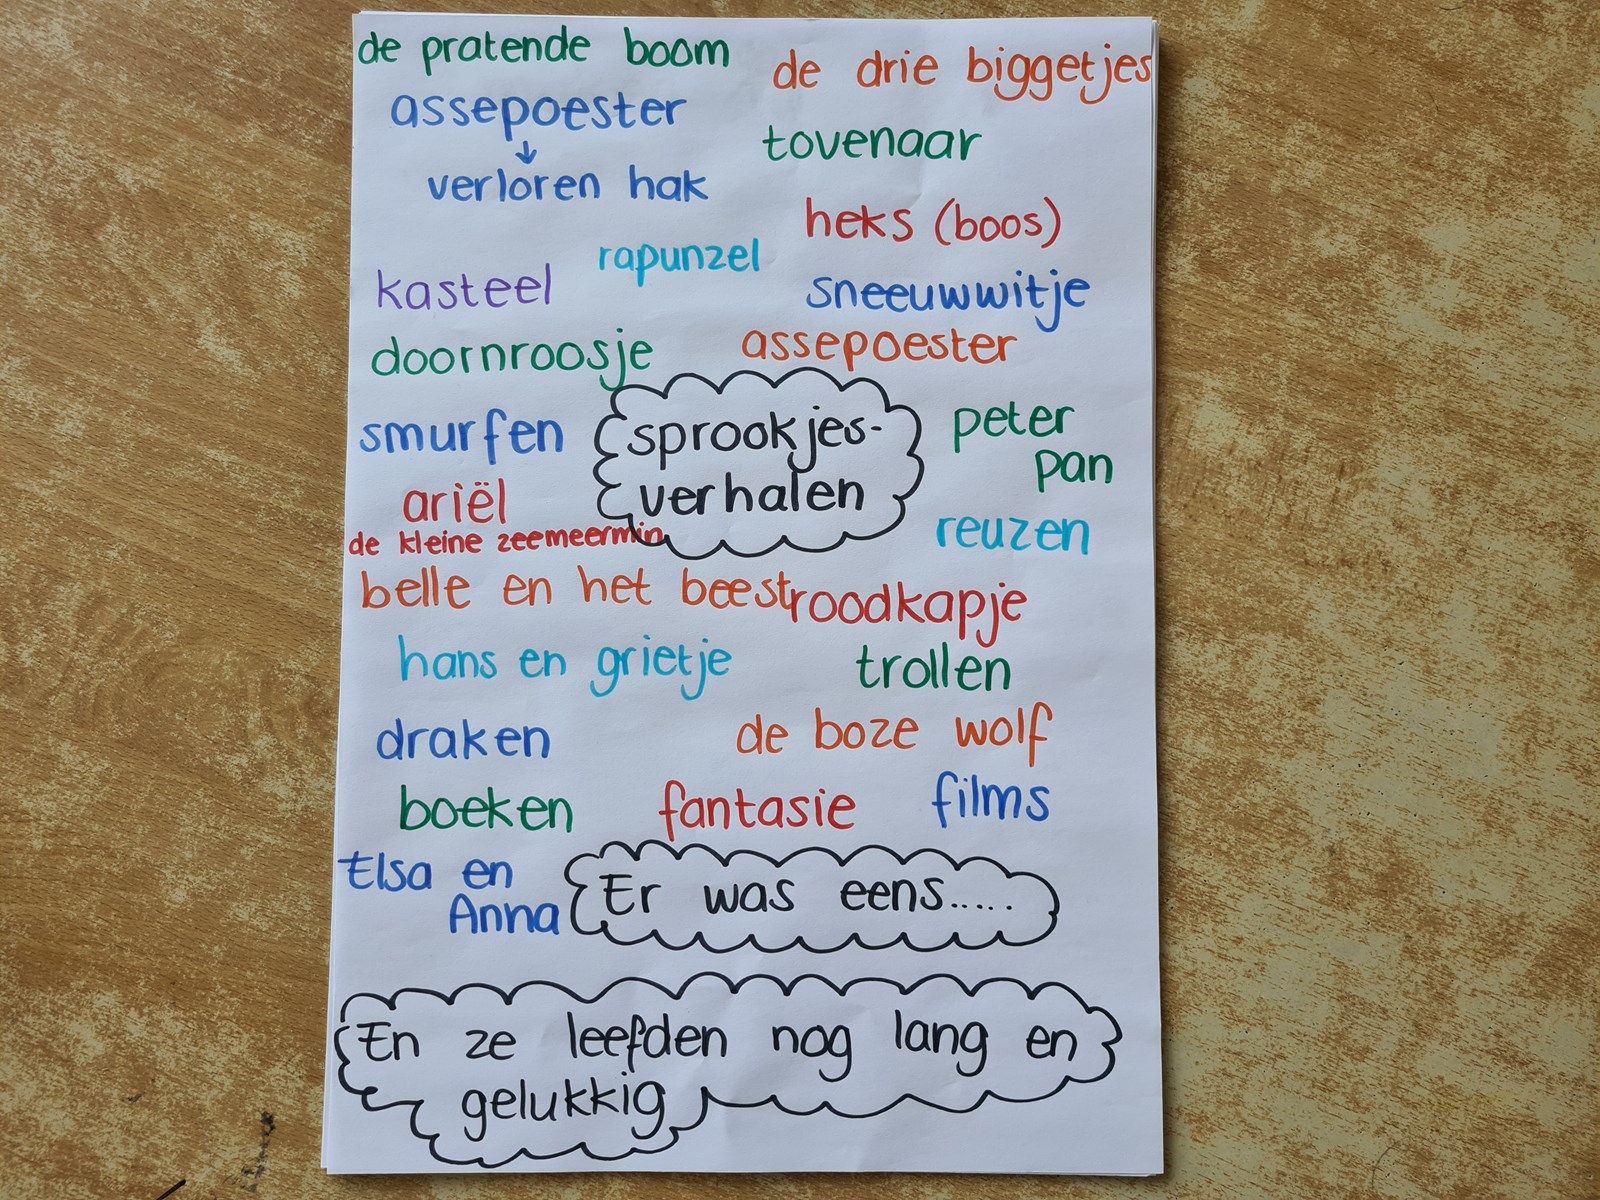 de pratende boom
de drie biggetjes
assepoester
↓
verloren hak
tovenaar
heks (boos)
rapunzel
kasteel
sneeuwwitje
doornroosje
assepoester
smurfen
sprookjes-
verhalen
peter
pan
ariël
de kleine zeemeermin
reuzen
belle en het beest
roodkapje
hans en grietje
trollen
draken
de boze wolf
boeken
fantasie
films
Elsa en
Anna
Er was eens.....
En ze leefden nog lang en
gelukkig